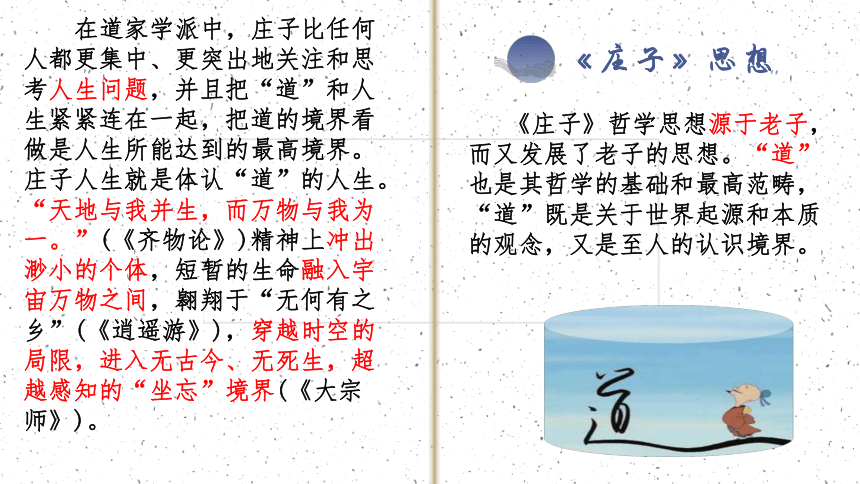 在道家学派中，庄子比任何
人都更集中、更突出地关注和思
考人生问题，并且把“道”和人
生紧紧连在一起，把道的境界看
做是人生所能达到的最高境界。
庄子人生就是体认“道”的人生。
“天地与我并生，而万物与我为
一。”(《齐物论》)精神上冲出
渺小的个体，短暂的生命融入宇
宙万物之间，翱翔于“无何有之
乡”(《逍遥游》)，穿越时空的
局限，进入无古今、无死生，超
越感知的“坐忘”境界(《大宗
师》)。
《庄子》思想
《庄子》哲学思想源于老子，
而又发展了老子的思想。“道”
也是其哲学的基础和最高范畴，
“道”既是关于世界起源和本质
的观念，又是至人的认识境界。
道